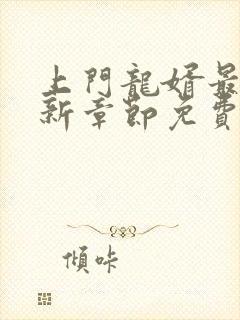 上門龍婿最
新章節免費
傾咔